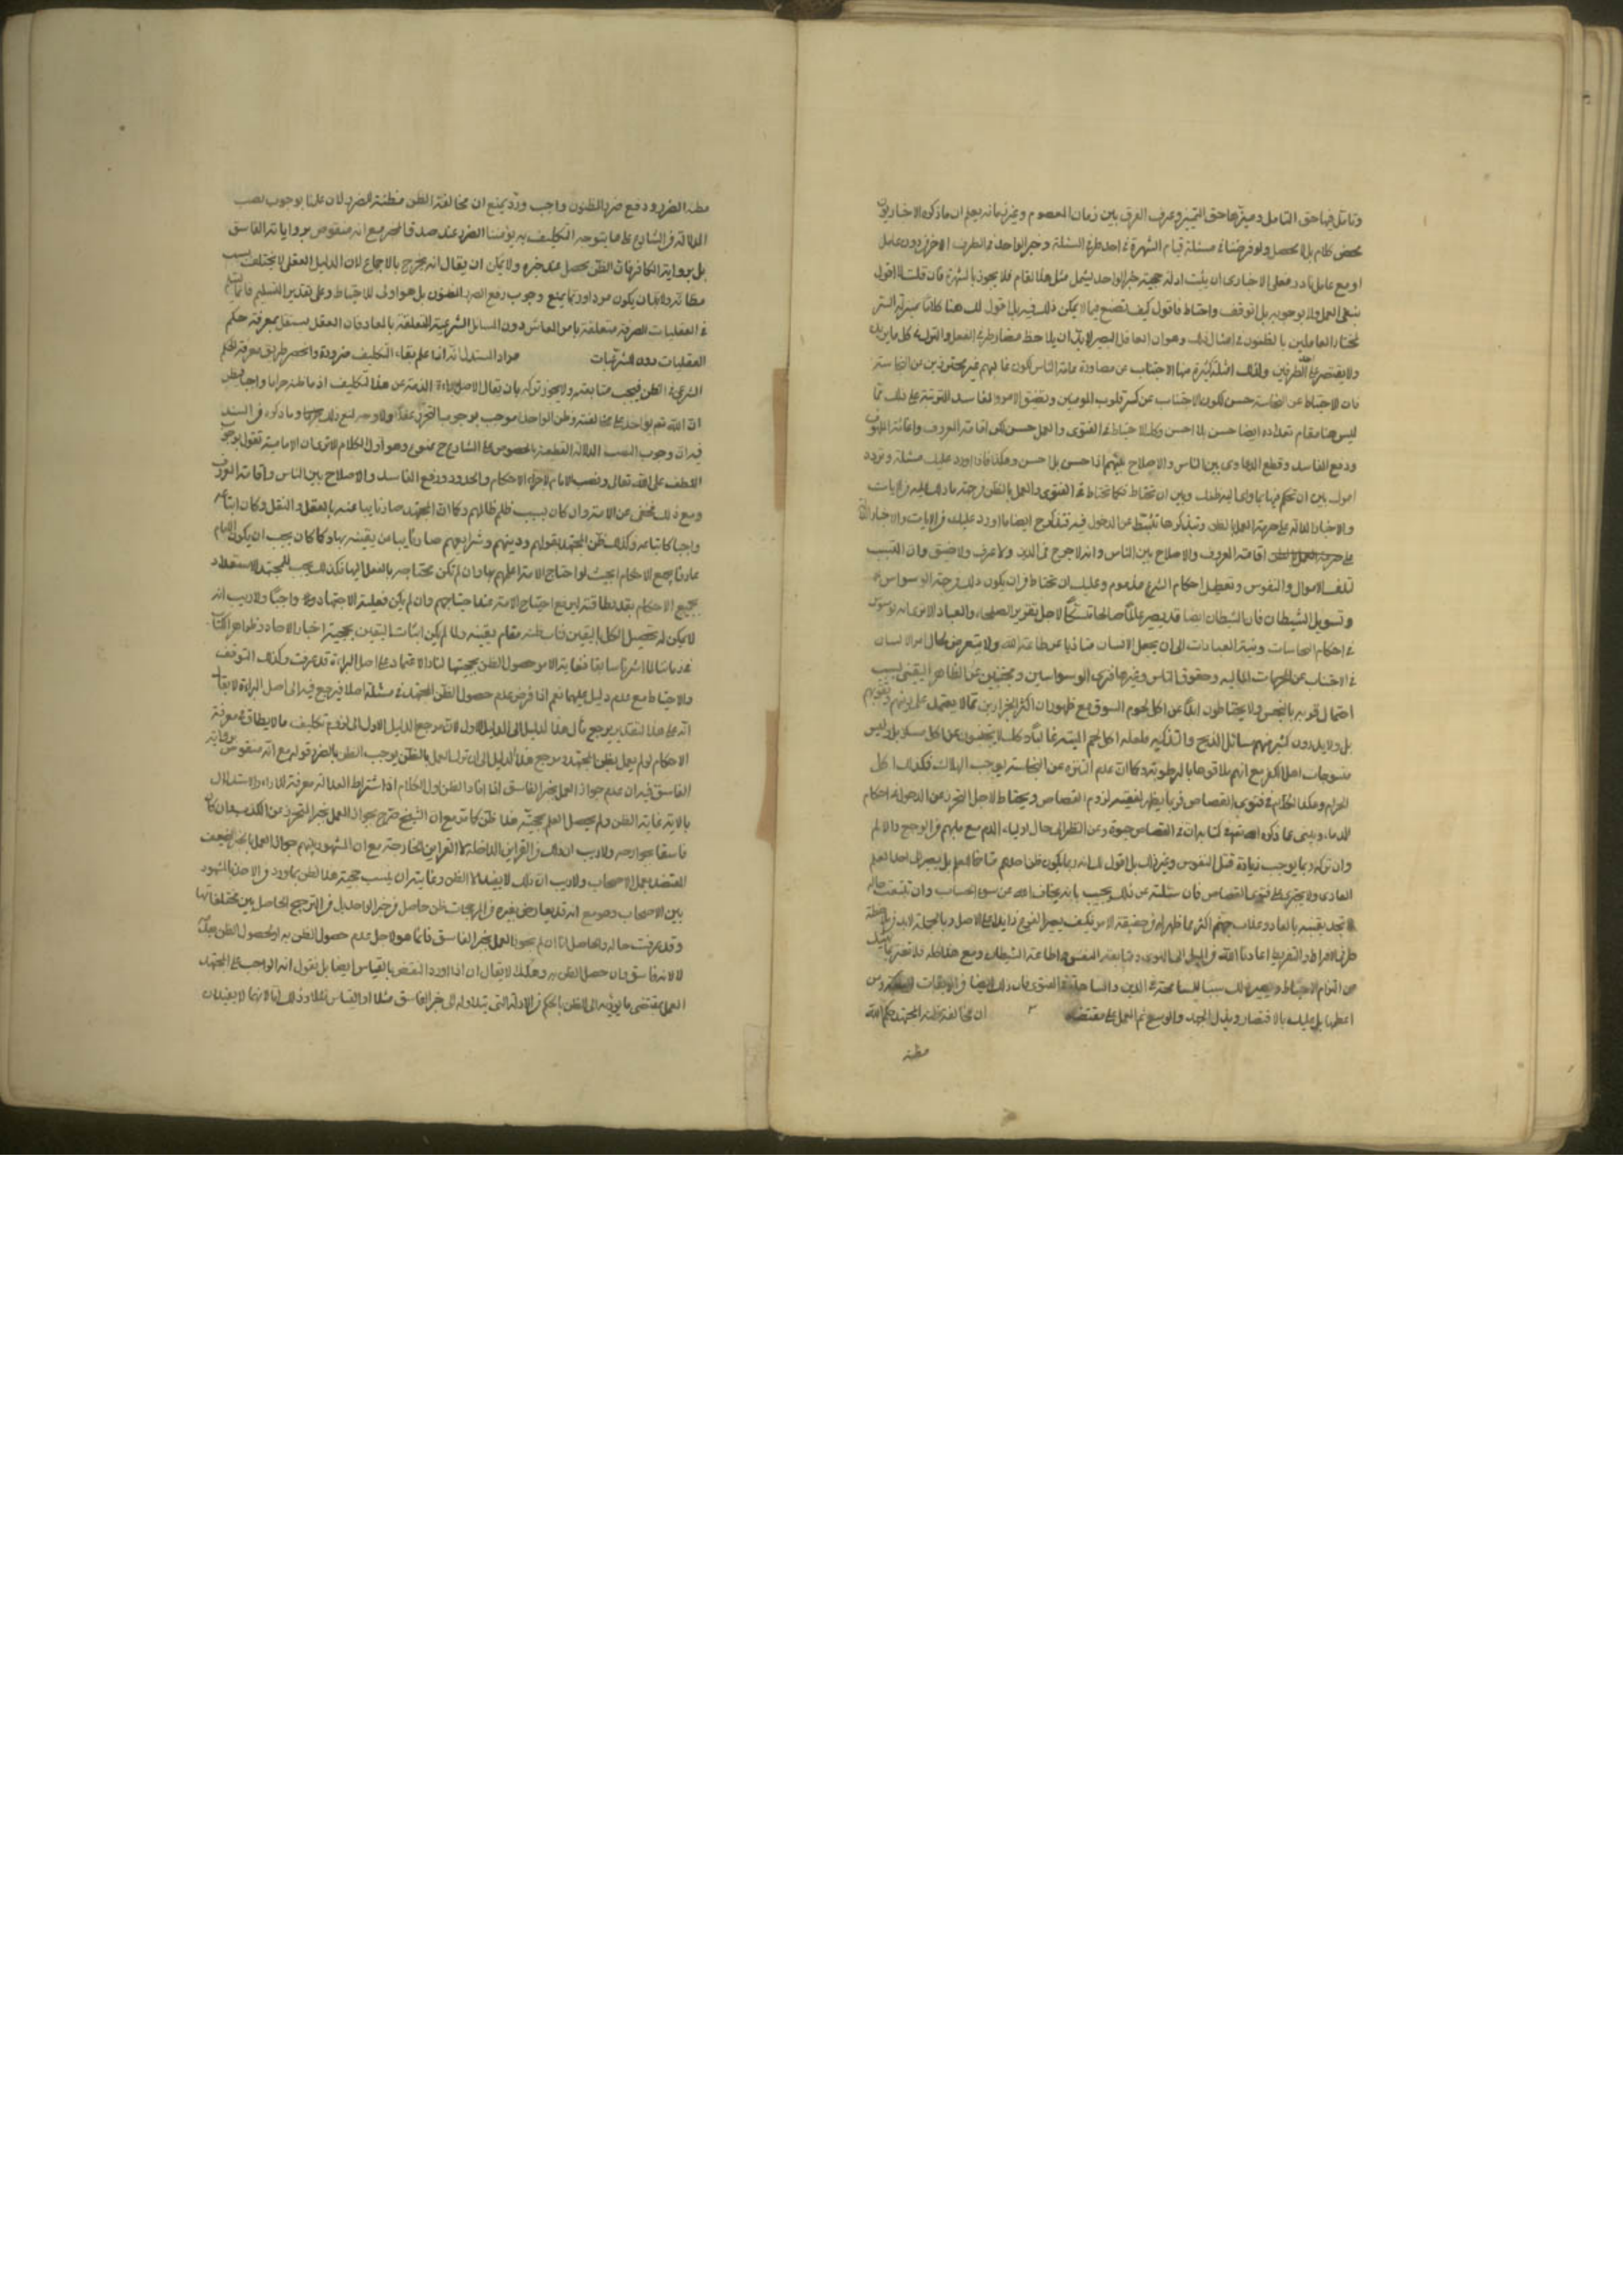 وتامل فيها حق التامل وميزها حق التميز وعرف الفرق بين زمان المعصوم وغير زمانه يعلم ان ما ذكره الاخباريون
محض كلام بلا محصل ولو فرضنا في مسئلة قيام الشهرة في احد طرفي المسئلة وخبر الواحد في الطرف الاخر دون عامل
او مع عامل نادر فعلى الاخباري ان يثبت ادلة حجية خبر الواحد ليشمل مثل هذا المقام فلا يجوز بالشهرة فان قلت لا اقول
ينفي العمل ولا بوجوبه بل اتوقف واحتاط فاقول كيف تصنع فيما لا يمكن ذلك فيه بل اقول لك هنا كلاما بمنزلة السر
لمختار العاملين بالظنون في امثال ذلك وهو ان العاقل البصير لا بد ان يلاحظ مضار طرفي الفعل والترك في كل ما يريد
ولا يقتصر على احد الطرفين ولذلك امثلة كثيرة منها الاجتناب عن مساورة عامة الناس لكون غالبهم غير محترزين عن النجاسة
فان الاحتياط عن النجاسة حسن لكن الاجتناب عن كسر قلوب المومنين وتضييق الامور والمفاسد المترتبة على ذلك مما
ليس هنا مقام تعداده ايضا حسن بل احسن وكذا الاحتياط في الفتوى والعمل حسن لكن اقامة المعروف واغاثة الملهوف
ودفع المفاسد وقطع الدعاوي بين الناس والاصلاح بينهم اذا حسن بل احسن وهكذا فاذا اورد عليك مسئلة وتردد
امرك بين ان تحكم فيها بما ادى اليه ظنك وبين ان تحتاط فكما تحتاط في الفتوى والعمل بالظن من جهة ما دل عليه من الايات
والاخبار الدالة على حرمة العمل بالظن وتتذكرها تثبط عن الدخول فيه فتذكر ح ايضا ما اورد عليك في الايات والاخبار الدالة
على اقامة المعروف والاصلاح بين الناس وانه لا حرج في الدين ولا عسر ولا ضيق وان التسبب
لتلف الاموال والنفوس وتعطيل احكام الشرع مذموم وعليك ان تحتاط في ان يكون ذلك من جهة الوسواس
وتسويل الشيطان فان الشيطان ايضا قد يصير عالما صالحا لاجل تغرير الصلحاء والعباد الا ترى انه يوسوس
في احكام النجاسات ونية العبادات الى ان يجعل الانسان متاذيا عن طاعة الله ولا يتعرض لحال امر الانسان
في الاجتناب عن الجهات المالية وحقوق الناس وغيرها فترى الوسواسين ومجتنبين عن الظاهر اليقيني بسبب
احتمال قريب بالنجس ولا يحتاطون ابدا عن اكل لحوم السوق مع ظهور ان اكثر الجزارين ممن لا يعتمد على دينهم وتقويهم
بل ولا يدرون كثير منهم مسائل الذبح والتذكية
منسوجات اهل الكفر مع انهم يلاقوها بالرطوبة وكما ان عدم التنزه عن النجاسة يوجب الهلاك فكذلك اكل
الحرام وهكذا الكلام في فتوى القصاص فربما يظهر لفقيه لزوم القصاص ويحتاط لاجل التحرز عن الدخول في احكام
الدماء وينسى ما ذكره الله في كتابه ان في القصاص حيوة وعن النظر الى حال اولياء الدم مع ما بهم من الوجع والالم
وان تركه ربما يوجب زيادة قتل النفوس وغير ذلك بل اقول لك انه ربما يكون ظن احدهم متاخما للعلم بل يصير الى احد العلم
العادي ولا يجتري على فتوى القصاص فان سئلته عن ذلك يجيب بانه يخاف الله عن سوء الحساب وان تتبعت حاله
لا تجد يقينه بالمعاد وعذاب جهنم اكثر مما ظهر له في حقيقة الامر فكيف يصير الفرع زايدا على الاصل وبالجملة لا بد من ملاحظة
طرفي الافراط والتفريط اعاذنا الله من الميل الى الهوى ومتابعة النفس واطاعة الشيطان ومع هذا كله فلا تغتر بما
من التزام الاحتياط ويصير ذلك سببا للمسامحة في الدين والمساهلة في الفتوى فان ذلك ايضا من الموبقات
اعظمها بل عليك بالاقتصار وبذل الجهد والوسع ثم العمل على مقتضاه ان مخالفة ظنه المجتهد بحكم الله
مظنة
مظنة الضرر ودفع ضرر المظنون واجب ورد بمنع ان مخالفة الظن مظنة الضرر لان علمنا بوجوب نصب
الدلالة من الشارع على ما يتوجه التكليف به يؤمننا الضرر عند صدق المخبر مع انه منقوض برواية الفاسق
بل برواية الكافر فان الظن يحصل عند خبره ولا يمكن ان يقال انه يخرج بالاجماع لان الدليل العقلي لا يختلف بحسب
مظانه ولا بد ان يكون مرداودا بمنع وجوب دفع الضرر المظنون بل هو اولى للاحتياط وعلى تقدير التسليم فانما يسلم
في العقليات الصرفة متعلقة بامر المعاش دون المسائل الشرعية المتعلقة بالمعاد فان العقل يستقل بمعرفة حكم
العقليات دون الشرعيات مراد المستدل انه اذا علم بقاء التكليف ضرورة وانحصر طريق معرفة الحكم
الشرعي في الظن فيجب متابعته ولا يجوز تركه بان يقال الاصل براءة الذمة عن هذا التكليف اذ ما ظنه حراما واجبا يظن
ان الله تعم يؤاخذه على مخالفته وظن المؤاخذة موجب لوجوب التحرز عقلا ولا وجه لمنع ذلك وما ذكره من السند
فيه ان وجوب النصب الدلالة القطعية بالخصوص على الشارع ح ممنوع وهو اول الكلام الا ترى ان الامامية تقول بوجوب
اللطف على الله تعالى ونصب الامام لاجراء الاحكام والحدود ودفع المفاسد والاصلاح بين الناس واقامة المعروف
ومع ذلك مخفي عن الامة وان كان بسبب ظلم ظالمهم وكما ان المجتهد صار نايبا عنه بالعقل والنقل وكان اتباعه
واجبا كاتباعه وكذلك ظن المجتهد بقولهم ودينهم وشرايعهم صار نايبا عن يقينه بها وكما كان يجب ان يكون الامام
عارفا بجميع الاحكام بحيث لو احتاج الامة اعلمهم بها وان لم يكن محتاجة بالفعل اليها فكذلك يجب للمجتهد الاستعداد
لجميع الاحكام بقدر طاقته ليرفع احتياج الامة عند احتياجهم وان لم يكن فعلية الاجتهاد واجبا ولا ريب انه
لا يمكن له تحصيل الكل باليقين فناب ظنه مقام يقينه ولما لم يكن اثبات اليقين بحجية اخبار الاحاد وظواهر الكتاب
في زماننا لما اشرنا سابقا فغاية الامر حصول الظن بحجيتها لنا والاعتماد على اصل البراءة قد عرفت وكذلك التوقف
والاحتياط مع عدم دليل عليهما نعم اذا فرض عدم حصول الظن للمجتهد في مسئلة اصلا فيرجع فيه الى اصل البراءة لا يقال
انه على هذا التقدير يرجع مآل هذا الدليل الى الدليل الاول لان مرجع الدليل الاول الى لزوم تكليف ما لا يطاق في معرفة
الاحكام لو لم يعمل بظن المجتهد ومرجع هذا الدليل الى ان ترك العمل بالظن يوجب الظن بالضرر قوله مع انه منقوض برواية
الفاسق فيه ان عدم جواز العمل بخبر الفاسق اذا افاد الظن اول الكلام اذ اشتراط العدالة معركة للاراء والاستدلال
بالاية غايته الظن ولم يحصل العلم بحجية هذا ظن كما تر مع ان الشيخ صرح بجواز العمل بخبر المتحرز عن الكذب وان كان
فاسقا بجوارحه ولا ريب ان ذلك من القراين الداخلة لا القراين الخارجة مع ان المشهور بينهم جواز العمل بالخبر الضعيف
المعتضد بعمل الاصحاب ولا ريب ان ذلك لا يفيد الا الظن وغايته ان يثبت حجية هذا الظن بما ورد من الاخذ بالمشهور
بين الاصحاب وهو مع انه قد يعارض بغيره من المرجحات ظن حاصل من خبر الواحد بل من الترجيح الحاصل بين مختلفاتها
وقد عرفت حاله والحاصل انا ان لم نجوز العمل بخبر الفاسق فانما هو لاجل عدم حصول الظن به او لحصول الظن بعدمه
لا لانه فاسق وان حصل الظن به وهكذا لا يقال ان اذا اورد النقض بالقياس ايضا بل نقول انه الواجب على المجتهد
العمل بمقتضى ما يؤديه الى الظن بالحكم من الادلة التي يتداوله الى خبر الفاسق مثلا او القياس مثلا وذلك اما لانهما لا يفيدان